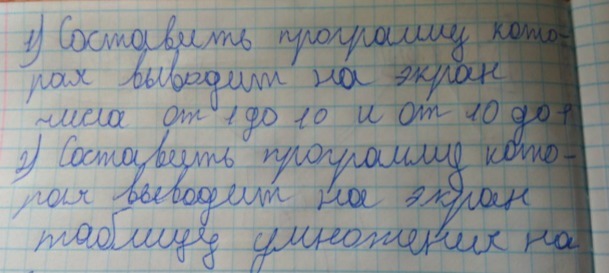 1) Составить программу кото-
рая выводит на экран
числа от 1 до 10 и от 10 до 1
2) Составить программу кото-
рая выводит на экран
таблицу умножения на